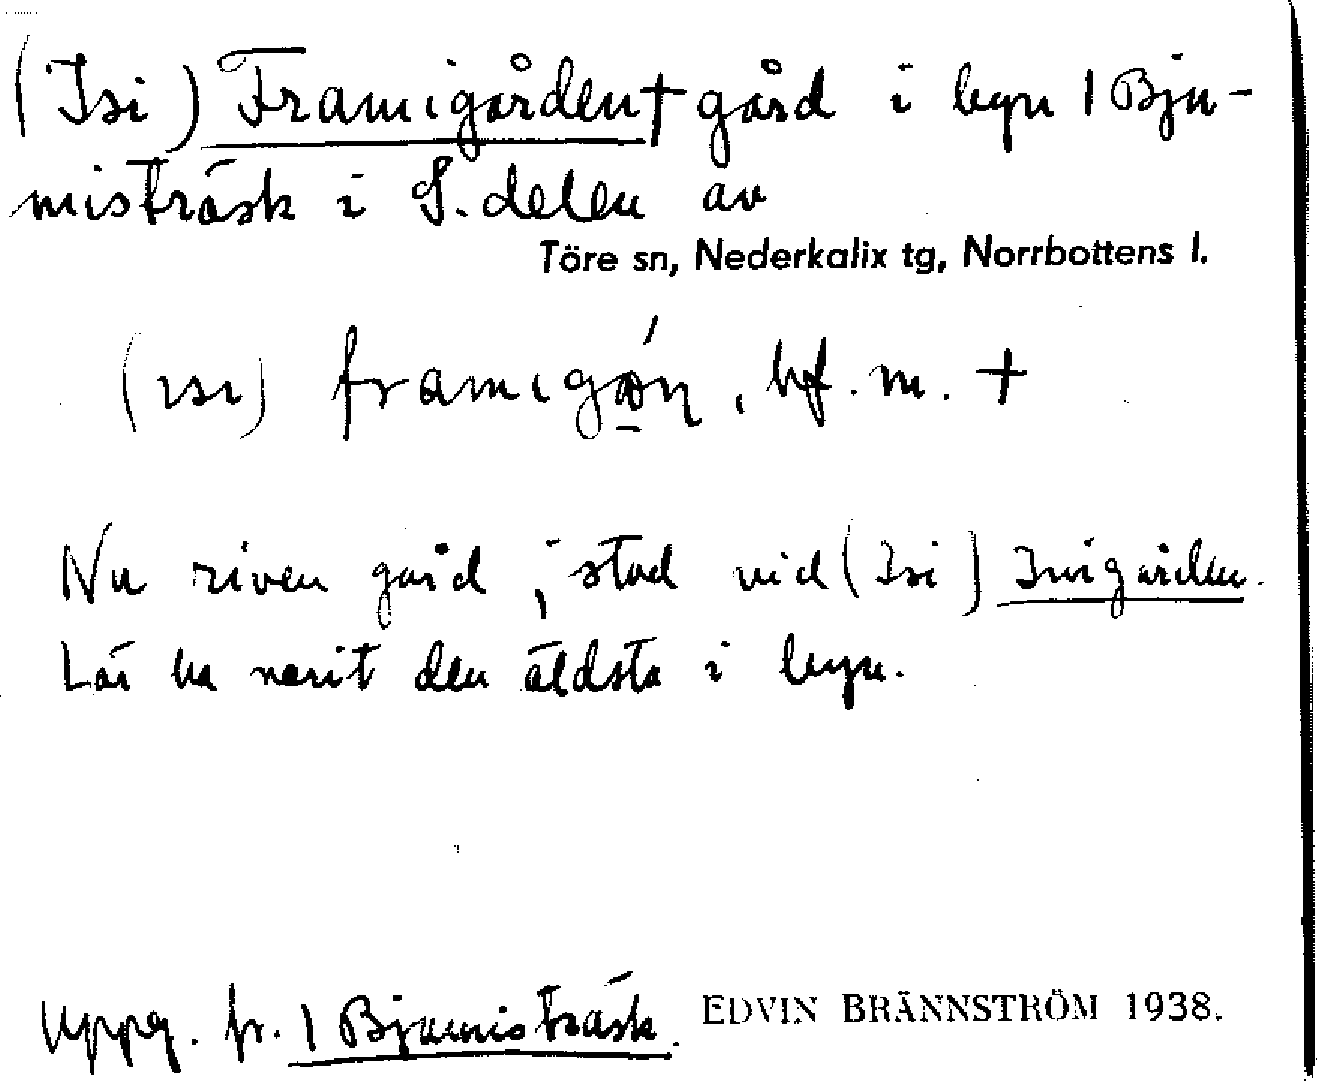 (Isi) Framigården † gård i byn 1 Bju-
misträsk i S. delen av
Töre sn, Nederkalix tg, Norrbottens l.
(ısı) framıgǻn, bf. m. †
Nu riven gård, stod vid (Isi) Inigården.
Lär ha varit den äldsta i byn.
Uppg. fr. 1 Bjumisträsk. EDVIN BRÄNNSTRÖM 1938.